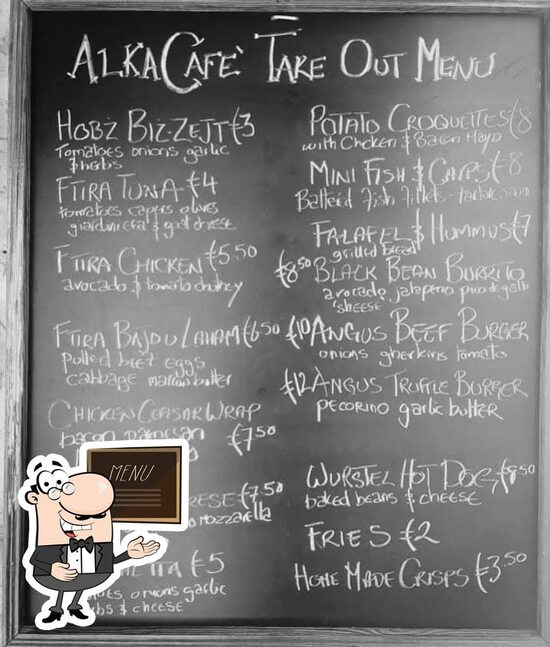 ALKA CAFE' TAKE OUT MENU
HOBŻ BIŻ-ZEJT €3
Tomatoes onions garlic
& herbs
FTIRA TUNA €4
tomatoes capers olives
giardiniera & goat cheese
FTIRA CHICKEN €5.50
avocado & tomato chutney
FTIRA BAJD U LAHAM €6.50
Pulled beef eggs
cabbage marrow butter
CHICKEN CEASAR WRAP
bacon parmesan
€7.50
MENU
RESE €7.50
mozzarella
€5
onions garlic
& cheese
POTATO CROQUETTES €8
with Chicken & Bacon Mayo
MINI FISH & CHIPS €8
Battered fish fillets - tartare sauce
FALAFEL & HUMMUS €7
grilled bread
€8.50 BLACK BEAN BURRITO
avocado jalapeno pico de gallo
cheese
€10 ANGUS BEEF BURGER
onions gherkins tomato
€12 ANGUS TRUFFLE BURGER
PECORINO garlic butter
WURSTEL HOT DOG €8.50
baked beans & cheese
FRIES €2
HOME MADE CRISPS €3.50